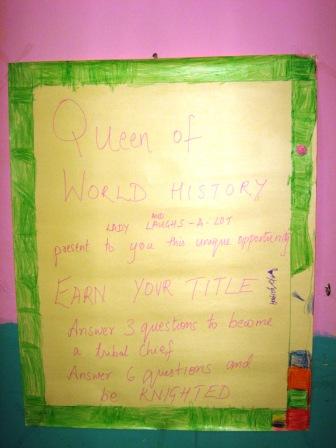 Queen of
WORLD HISTORY
AND
LADY LAUGHS-A-LOT
present to you this unique opportunity
EARN YOUR TITLE
Answer 3 questions to become
a tribal chief
Answer 6 questions and
be KNIGHTED